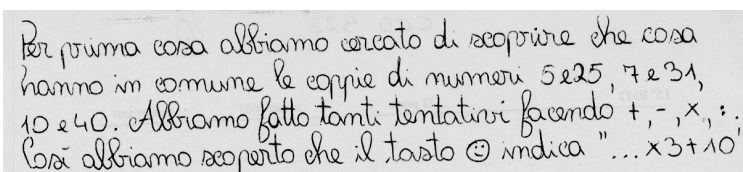 Per prima cosa abbiamo cercato di scoprire che cosa
hanno in comune le coppie di numeri 5 e 25, 7 e 31,
10 e 40. Abbiamo fatto tanti tentativi facendo +, -, x, :.
Così abbiamo scoperto che il tasto ☺ indica "... x3+10"